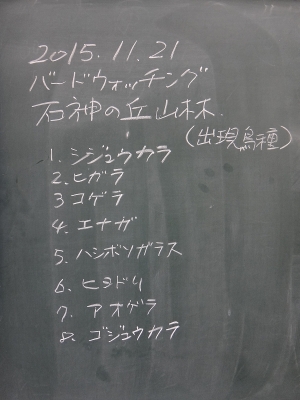 2015.11.21
バードウォッチング
石神の丘山林.
(出現鳥種)
1. シジュウカラ
2. ヒガラ
3 コゲラ
4. エナガ
5. ハシボソガラス
6. ヒヨドリ
7. アオゲラ
8. ゴジュウカラ